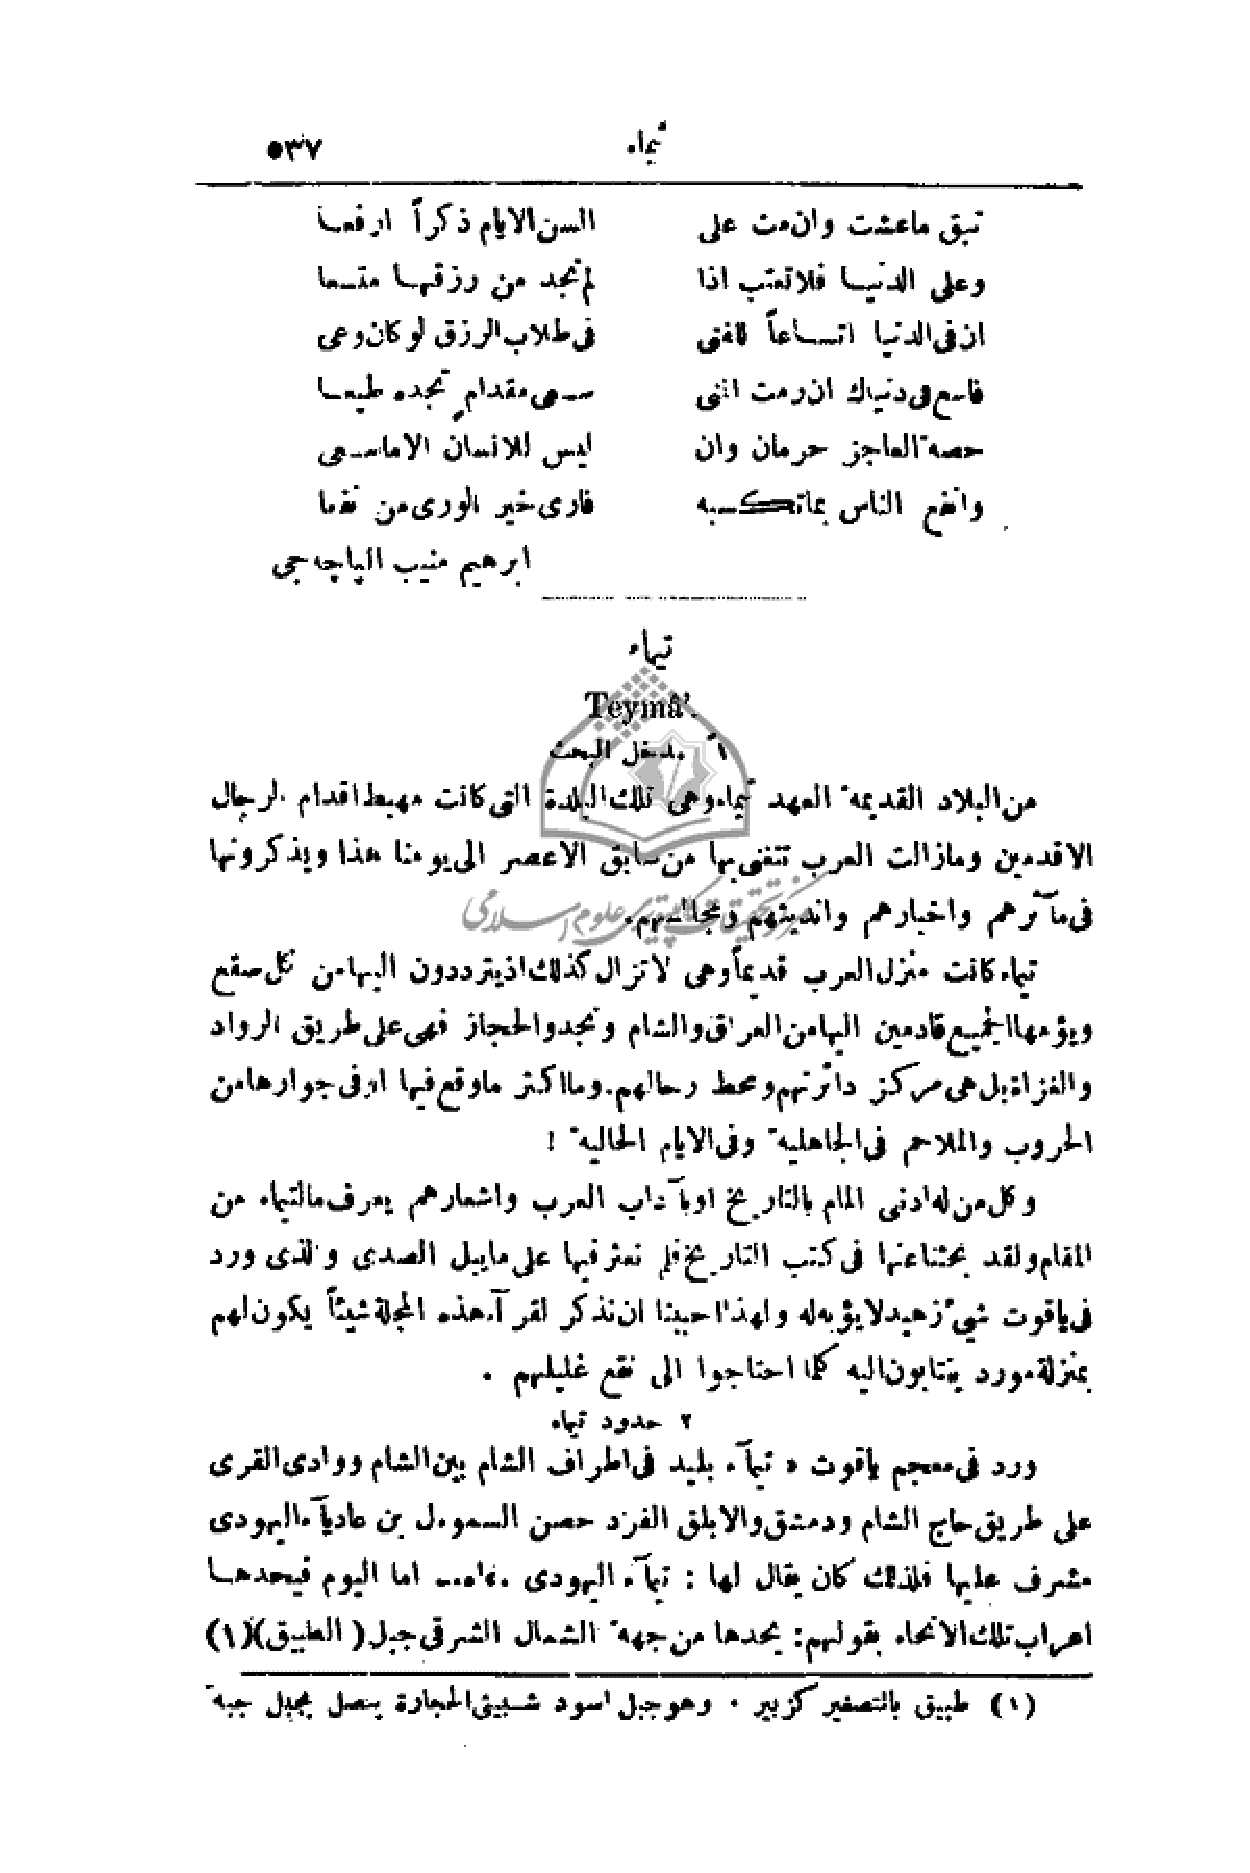 ٥٣٧ تيماء
تبق ماعشت وان مت على السن الايام ذكراً ارفعا
وعلى الدنيا فلا تعتب اذا لم تجد من رزقها متسعا
ان فى الدنيا اتساعاً للفتى فى طلاب الرزق لو كان وعى
فاسع فى دنياك ان رمت الغنى سعى مقدامٍ تجده طيعا
حصة العاجز حرمان وان ليس للانسان الا ماسعى
وانفع الناس بما تكسبه فارى خير الورى من نفعا
ابرهيم منيب الپاچه جى
تيماء
Teymâ’.
١ً مدخل البحث
من البلاد القديمة العهد تيماء وهى تلك البلدة التى كانت مهبط اقدام الرجال
الاقدمين ومازالت العرب تتغنى بها من سابق الاعصر الى يومنا هذا ويذكرونها
فى مآثرهم واخبارهم وانديتهم ومجالسهم.
تيماء كانت منزل العرب قديماً وهى لاتزال كذلك اذ يترددون اليها من كل صقع
ويؤمها الجميع قادمين اليها من العراق والشام ونجد والحجاز فهى على طريق الرواد
والغزاة بل هى مركز دائرتهم ومحط رحالهم. وما اكثر ماوقع فيها او فى جوارها من
الحروب والملاحم فى الجاهلية وفى الايام الحالية !
وكل من له ادنى المام بالتاريخ او بآداب العرب واشعارهم يعرف مالتيماء من
المقام ولقد بحثنا عنها فى كتب التاريخ فلم نعثر فيها على مايبل الصدى والذى ورد
فى ياقوت شىء زهيد لايؤبه له ولهذا احببنا ان نذكر لقرآء هذه المجلة شيئاً يكون لهم
بمنزلة مورد ينتابون اليه كلما احتاجوا الى نقع غليلهم .
٢ حدود تيماء
ورد فى معجم ياقوت « تيمآء بليد فى اطراف الشام بين الشام ووادى القرى
على طريق حاج الشام ودمشق والابلق الفرد حصن السموءل بن عاديآء اليهودى
مشرف عليها فلذلك كان يقال لها : تيمآء اليهودى اما اليوم فيحدها
اعراب تلك الانحاء بقولهم: يحدها من جهة الشمال الشرقى جبل ( الطبيق )(١)
(١) طبيق بالتصغير كزبير . وهو جبل اسود شبيثى الحجارة يتصل بجبل جبة
مركز تحقيقات كامپيوترى علوم اسلامى